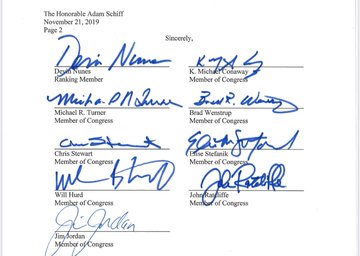 The Honorable Adam Schiff
November 21, 2019
Page 2
Sincerely,
Devin Nunes
Devin Nunes
Ranking Member
K. Michael Conaway
Member of Congress
Michael R. Turner
Michael R. Turner
Member of Congress
Brad R. Wenstrup
Brad Wenstrup
Member of Congress
Chris Stewart
Chris Stewart
Member of Congress
Elise M. Stefanik
Elise Stefanik
Member of Congress
Will Hurd
Will Hurd
Member of Congress
John Ratcliffe
John Ratcliffe
Member of Congress
Jim Jordan
Jim Jordan
Member of Congress